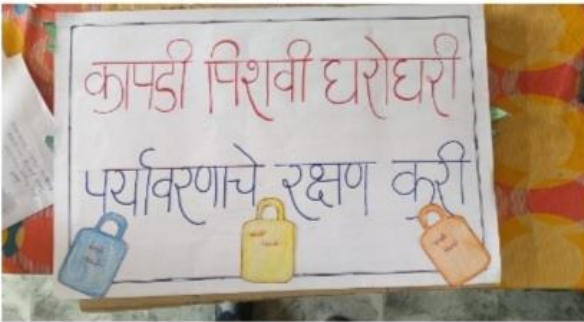 कापडी पिशवी घरोघरी
पर्यावरणाचे रक्षण करी